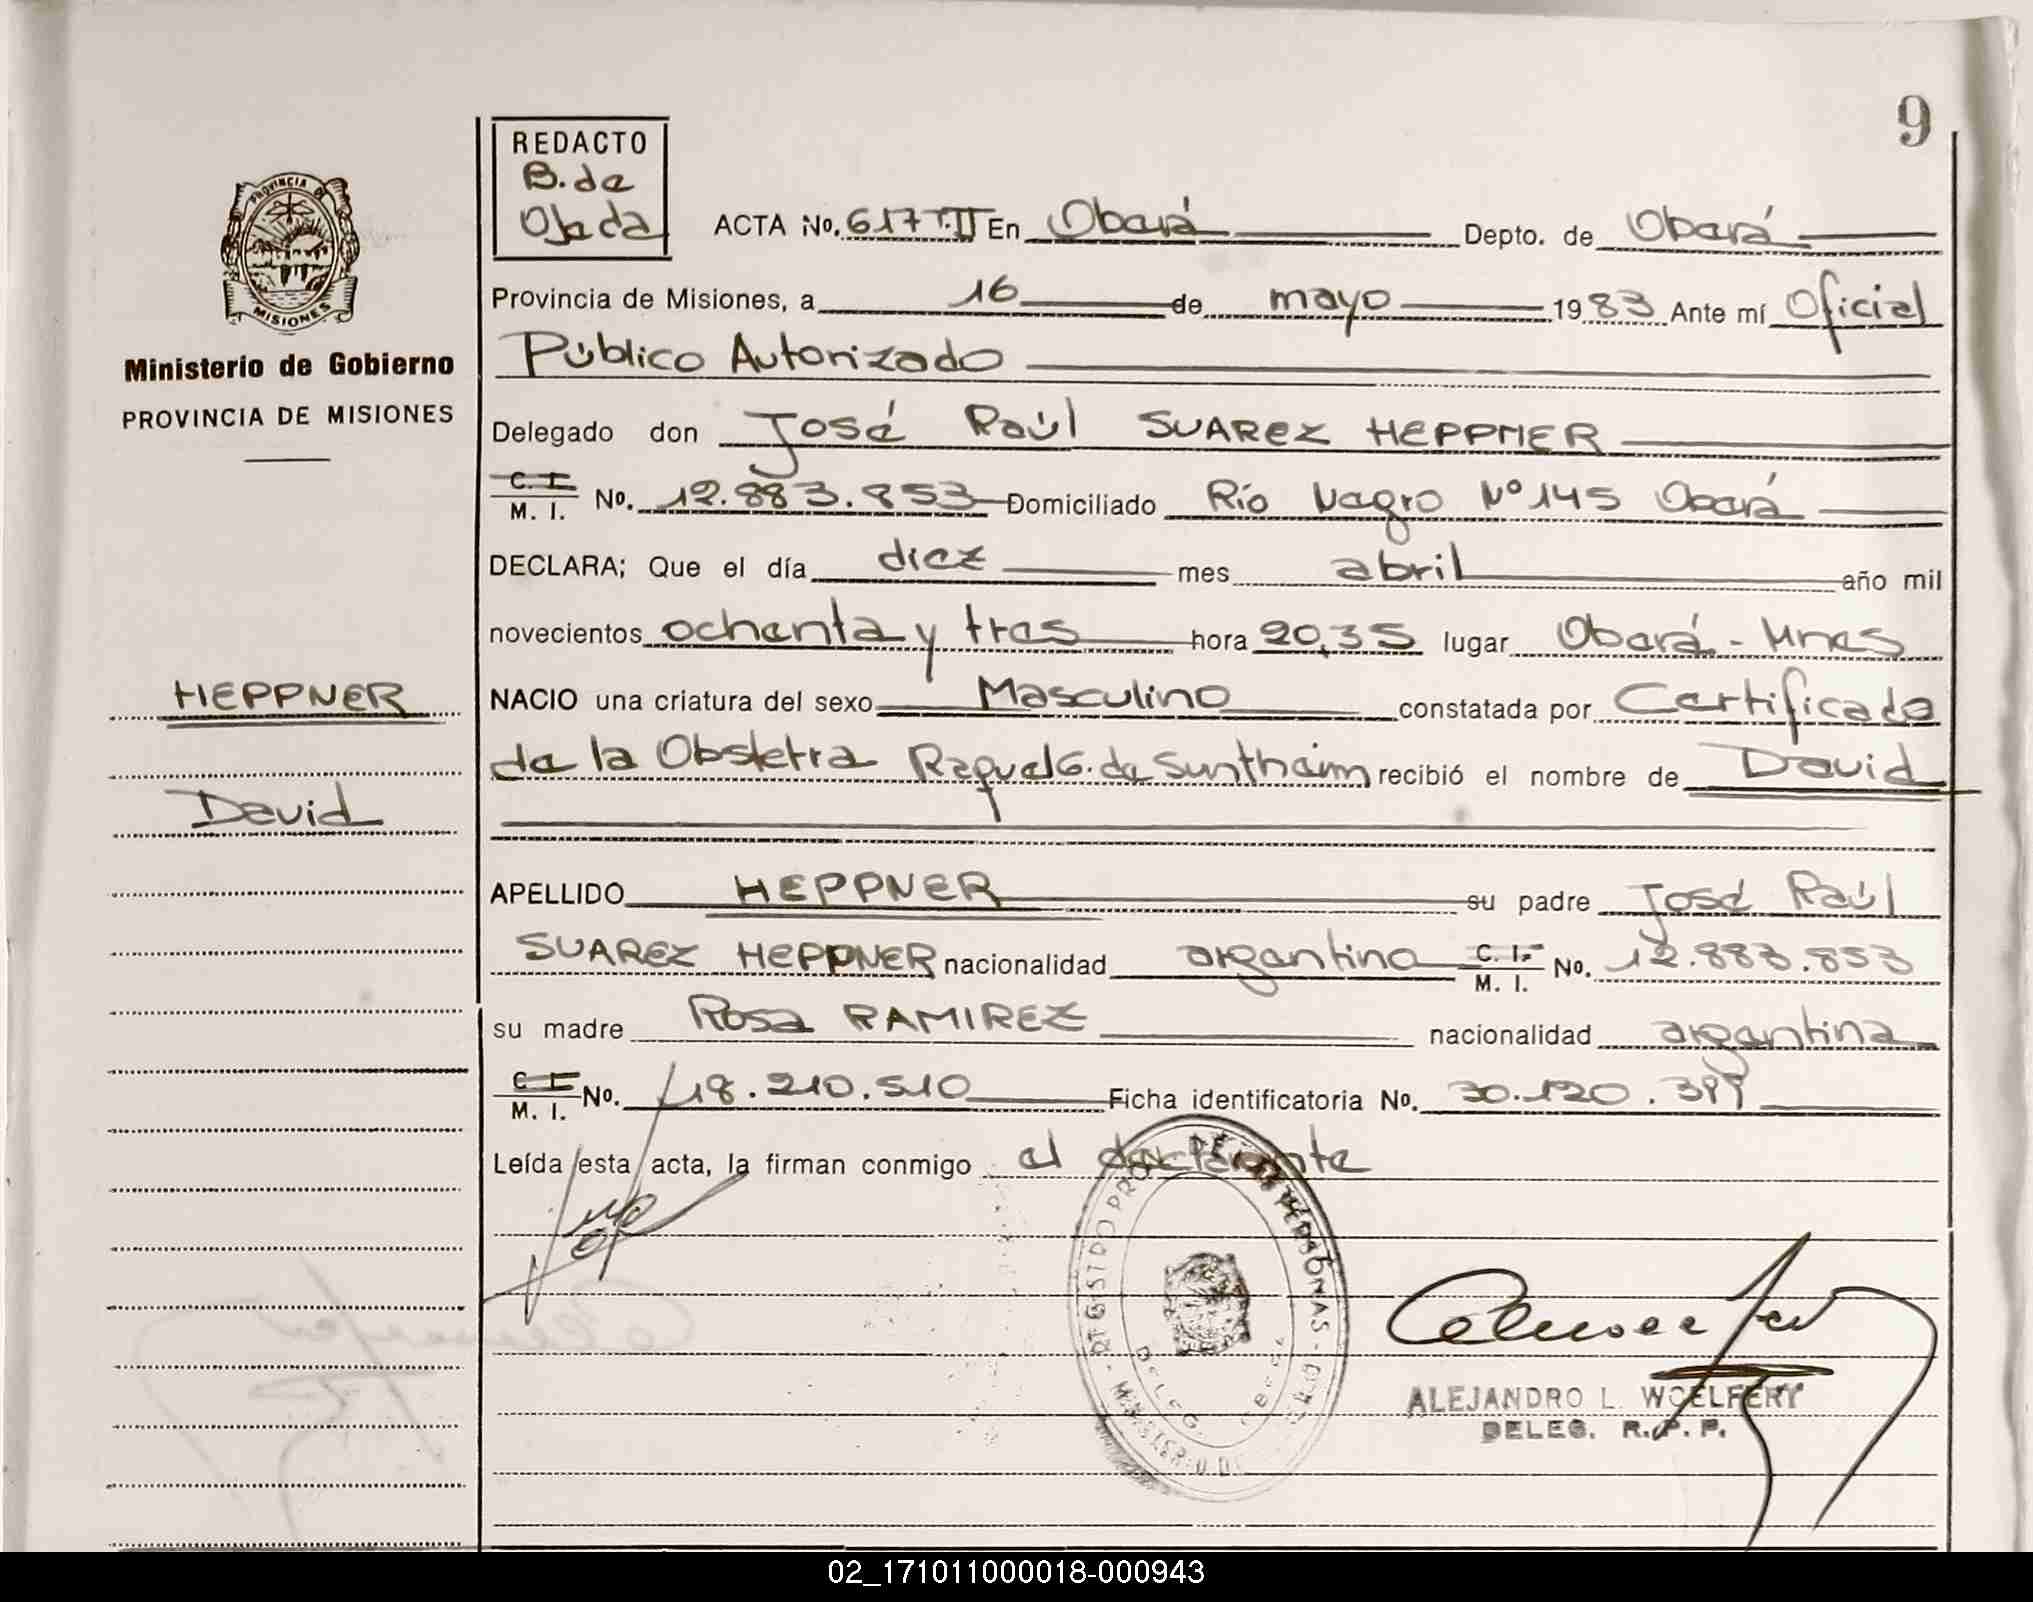 9
REDACTO
B. de
Ojeda
ACTA No. 617 T.II En Oberá Depto. de Oberá
Provincia de Misiones, a 16 de mayo 1983 Ante mí Oficial
Público Autorizado
Delegado don José Raúl SUAREZ HEPPNER
C. I.
M. I. No. 12.883.853 Domiciliado Río Negro Nº 145 Oberá
DECLARA; Que el día diez mes abril año mil
novecientos ochenta y tres hora 20,35 lugar Oberá - Mnes
NACIO una criatura del sexo Masculino constatada por Certificado
de la Obstetra Raquel G. de Suntheim recibió el nombre de David
APELLIDO HEPPNER su padre José Raúl
SUAREZ HEPPNER nacionalidad argentina C. I.
M. I. No. 12.883.853
su madre Rosa RAMIREZ nacionalidad argentina
C. I.
M. I. No. 18.210.510 Ficha identificatoria No. 30.120.399
Leída esta acta, la firman conmigo el declarante
PROVINCIA DE
MISIONES
Ministerio de Gobierno
PROVINCIA DE MISIONES
HEPPNER
David
ALEJANDRO L. WOELFERT
DELEG. R.P.P.
02_171011000018-000943